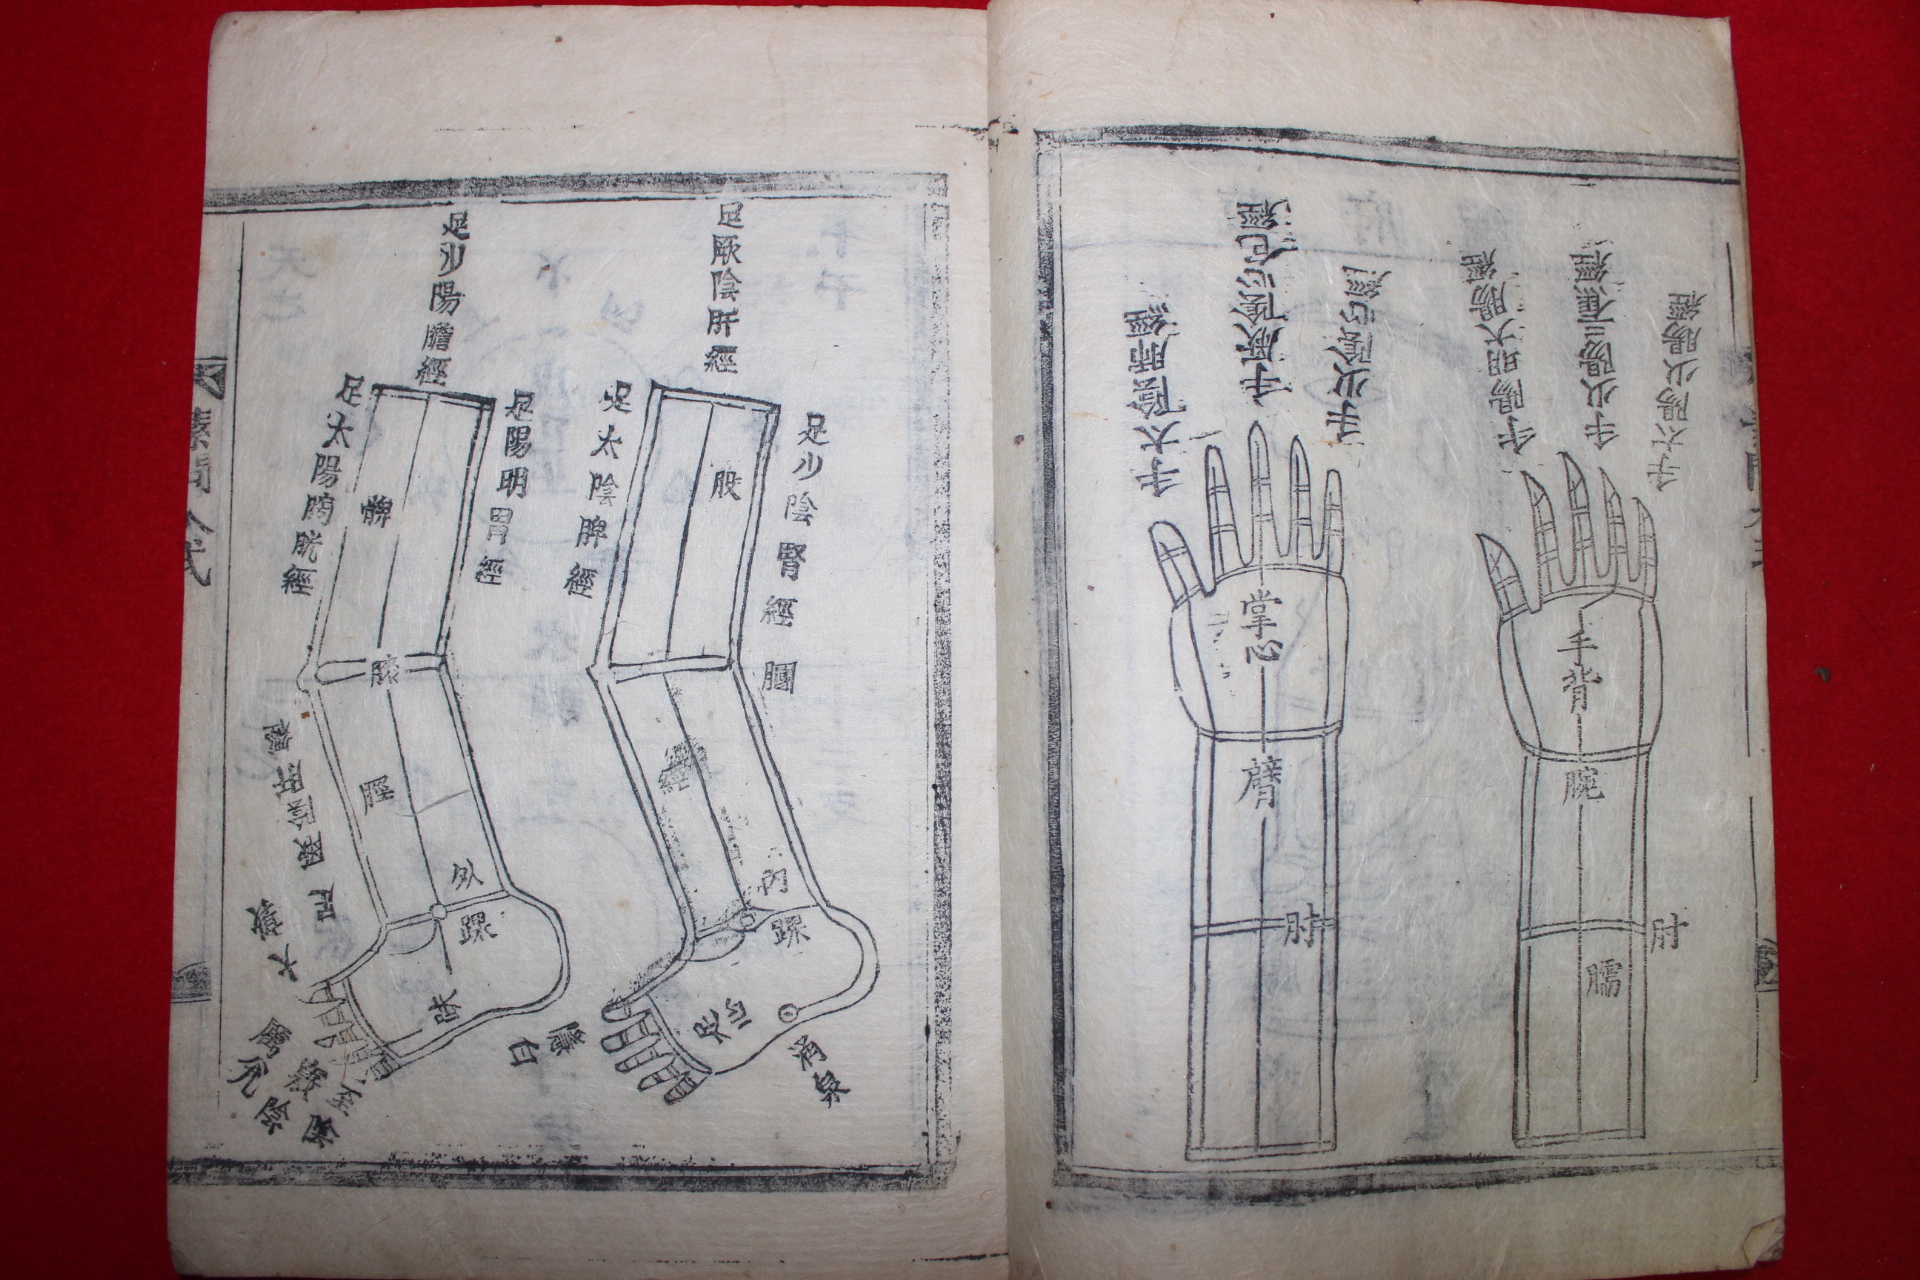 手太陽小腸經
手少陽三焦經
手陽明大腸經
手少陰心經
手厥陰心包經
手太陰肺經
手背
腕
肘
臑
掌心
臂
肘
足厥陰肝經
足少陰腎經
膕
足太陰脾經
股
內踝
足心
涌泉
隱白
足少陽膽經
足陽明胃經
足太陽膀胱經
髀
膝
外踝
足厥陰肝經
大敦
厲兌
至陰
竅陰
素問